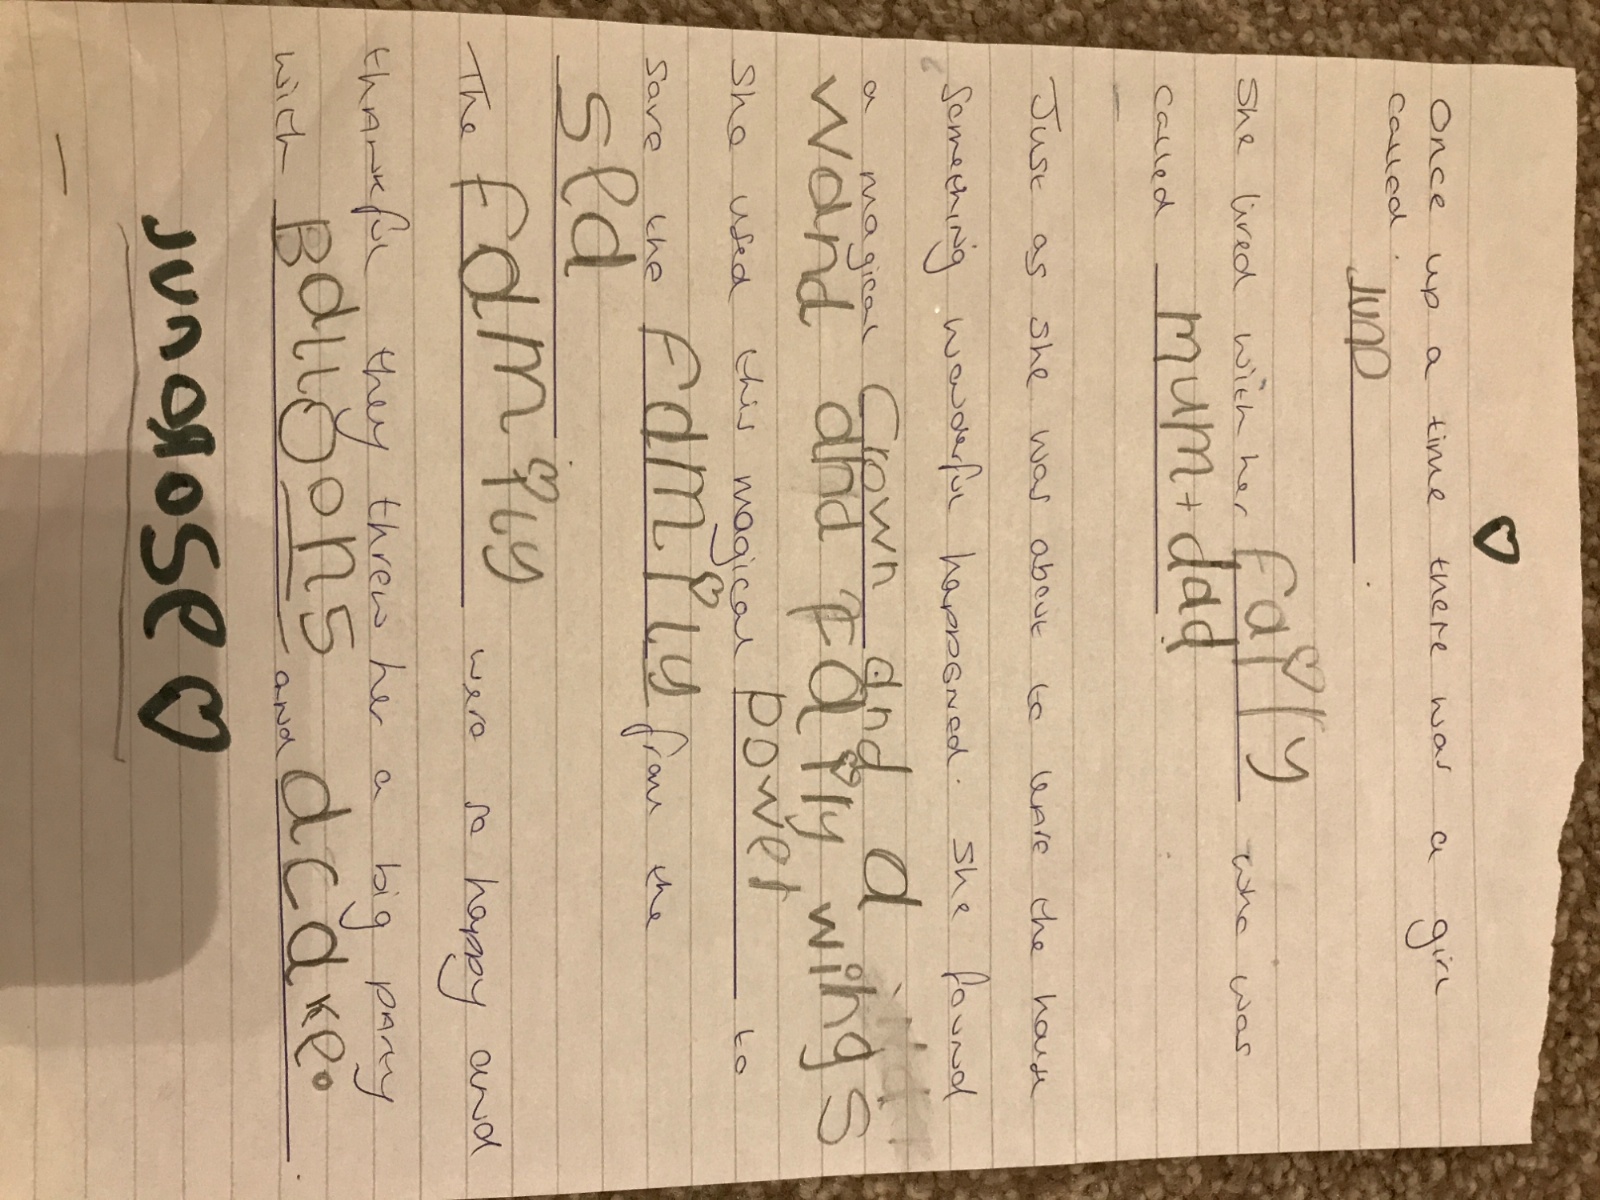 Once up a time there was a girl
called Juno .
She lived with her Faiyly who was
called mum + dad .
Just as she was about to leave the house
something wonderful happened. She found
a magical Crown and a
wand and Faiyly wings
She used this magical power to
save the Family from the
Sld
The Family were so happy and
thankful they threw her a big party
with Balloons and a cake.
Juno Rose